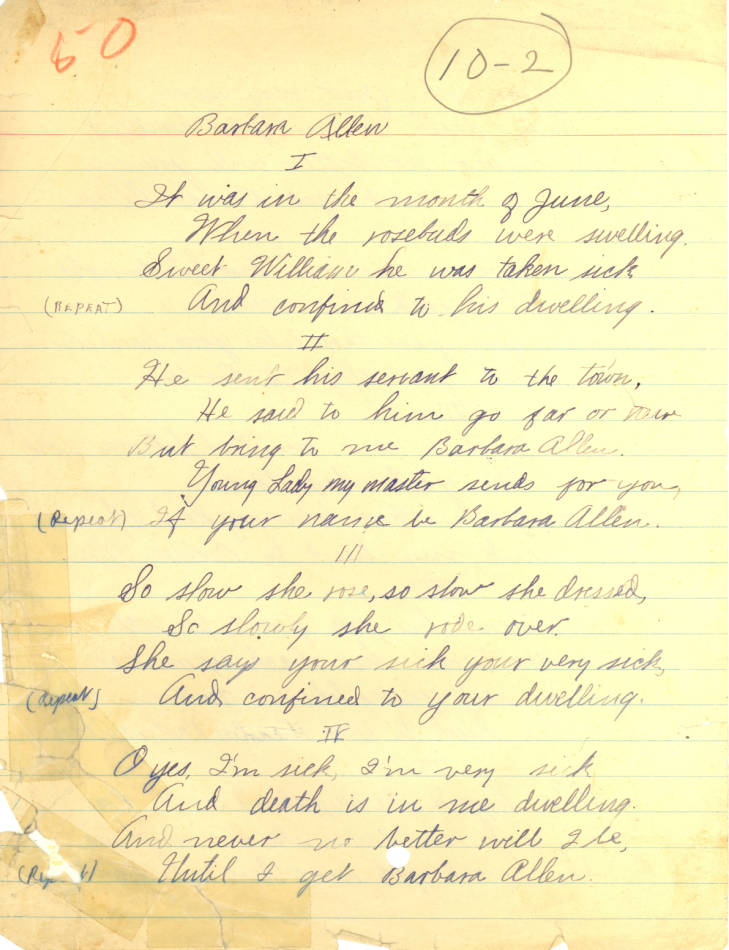 50
10-2
Barbara Allen
I
It was in the month of June,
When the rosebuds were swelling.
Sweet William he was taken sick
(REPEAT) And confined to his dwelling.
II
He sent his servant to the town,
He said to him go far or near
But bring to me Barbara Allen.
Young Lady my master sends for you,
(Repeat) If your name be Barbara Allen.
III
So slow she rose, so slow she dressed,
So slowly she rode over.
She says your sick your very sick,
(Repeat) And confined to your dwelling.
IV
O yes, I'm sick, I'm very sick
And death is in me dwelling.
And never no better will I be,
(Repeat) Until I get Barbara Allen.